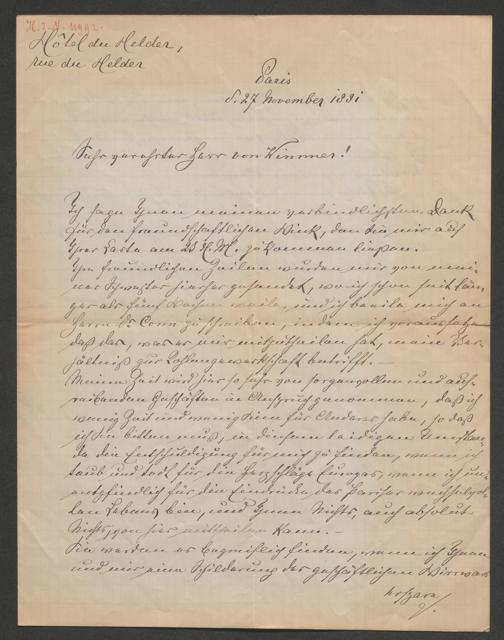 Hôtel du Helder,
rue du Helder
Paris
d. 27 November 1881
Sehr geehrter Herr von Wimmer!
Ich sage Ihnen meinen verbindlichsten Dank
für den freundschaftlichen Wink, den Sie mir auf
Ihrer Karte am 23 d. M. zukommen ließen.
Ihre freundlichen Zeilen wurden mir von mei-
ner Schwester hierher gesendet, wo ich schon seit län-
ger als fünf Wochen weile, und ich beeile mich an
Herrn Dr zu schreiben, indem ich voraussetze
daß das, was er mir mitzutheilen hat, mein Ver-
hältniß zur betrifft. —
Meine Zeit wird hier so sehr von sorgenvollen und auf-
reibenden Geschäften in Anspruch genommen, daß ich
wenig Zeit und wenig Sinn für Anderes habe, so daß
ich Sie bitten muß, in diesem leidigen Umstan-
de die Entschuldigung für mich zu finden, wenn ich
taub und todt für den Herzschlag Europas, wenn ich un-
empfindlich für die Eindrücke des Pariser wechselvol-
len Lebens bin, und Ihnen Nichts, auch absolut
Nichts, von hier mittheilen kann. —
Sie werden es begreiflich finden, wenn ich Ihnen
und mir eine Schilderung des geschäftlichen Wirrwars
erspare